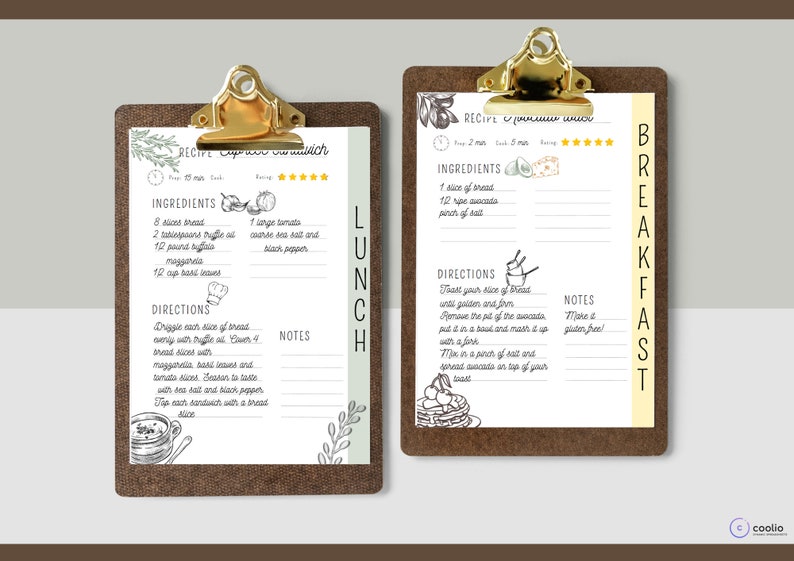 RECIPE Caprese Sandwich
Prep: 15 min Cook: Rating:
INGREDIENTS
8 slices bread
2 tablespoons truffle oil
1/2 pound buffalo
mozzarela
1/2 cup basil leaves
1 large tomato
coarse sea salt and
black pepper
DIRECTIONS
Drizzle each slice of bread
evenly with truffle oil. Cover 4
bread slices with
mozzarella, basil leaves and
tomato slices. Season to taste
with sea salt and black pepper
Top each sandwich with a bread
slice
NOTES
LUNCH
RECIPE Avocado toast
Prep: 2 min Cook: 5 min Rating:
INGREDIENTS
1 slice of bread
1/2 ripe avocado
pinch of salt
DIRECTIONS
Toast your slice of bread
until golden and firm
Remove the pit of the avocado,
put it in a bowl and mash it up
with a fork
Mix in a pinch of salt and
spread avocado on top of your
toast
NOTES
Make it
gluten free!
BREAKFAST
C coolio
DYNAMIC SPREADSHEETS